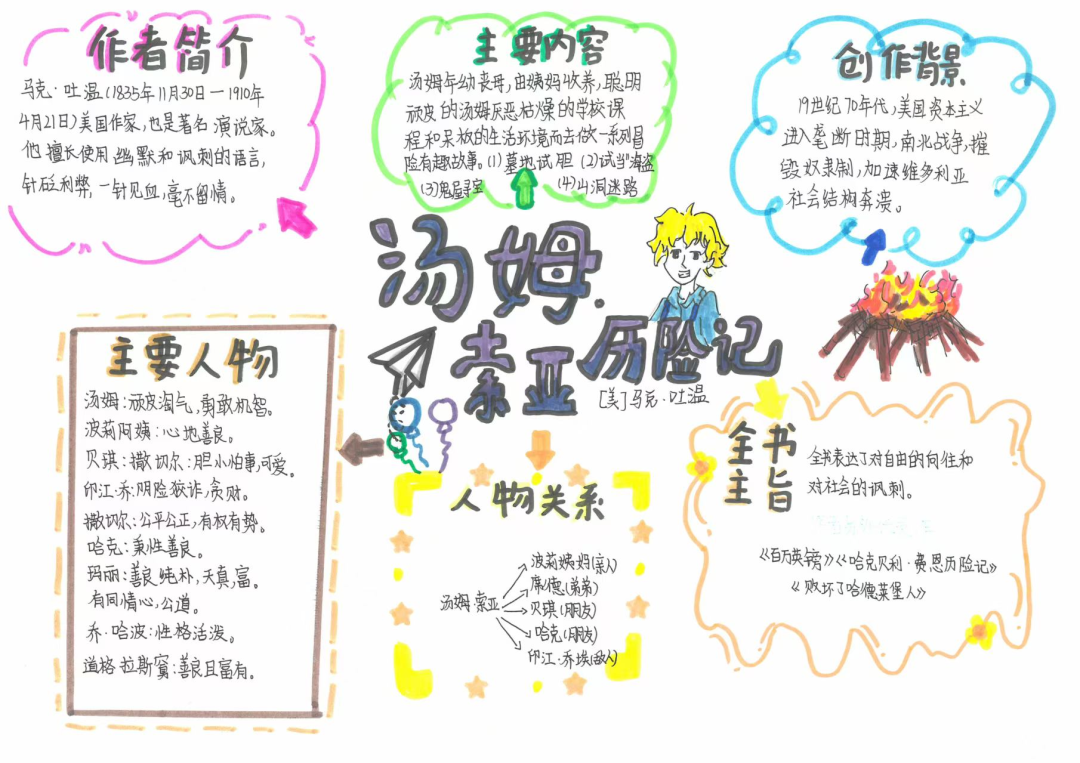 作者简介
马克·吐温(1835年11月30日—1910年
4月21日)美国作家,也是著名演说家。
他擅长使用幽默和讽刺的语言,
针砭利弊,一针见血,毫不留情。
主要内容
汤姆年幼丧母,由姨妈收养,聪明
顽皮的汤姆厌恶枯燥的学校课
程和呆板的生活环境而去做一系列冒
险有趣故事。(1)墓地试胆 (2)试当"海盗
(3)鬼屋寻宝 (4)山洞迷路
创作背景
19世纪70年代,美国资本主义
进入垄断时期,南北战争,摧
毁奴隶制,加速维多利亚
社会结构奔溃。
汤姆·
索亚历险记
[美]马克·吐温
主要人物
汤姆:顽皮淘气,勇敢机智。
波莉阿姨:心地善良。
贝琪·撒切尔:胆小怕事,可爱。
印江·乔:阴险狡诈,贪财。
撒切尔:公平公正,有权有势。
哈克:秉性善良。
玛丽:善良纯朴,天真,富。
有同情心,公道。
乔·哈波:性格活泼。
道格拉斯寡:善良且富有。
人物关系
汤姆·索亚
波莉姨妈(亲人)
席德(弟弟)
贝琪(朋友)
哈克(朋友)
印江·乔埃(敌人)
全书
主旨
全书表达了对自由的向往和
对社会的讽刺。
《百万英镑》《哈克贝利·费恩历险记》
《败坏了哈德莱堡人》